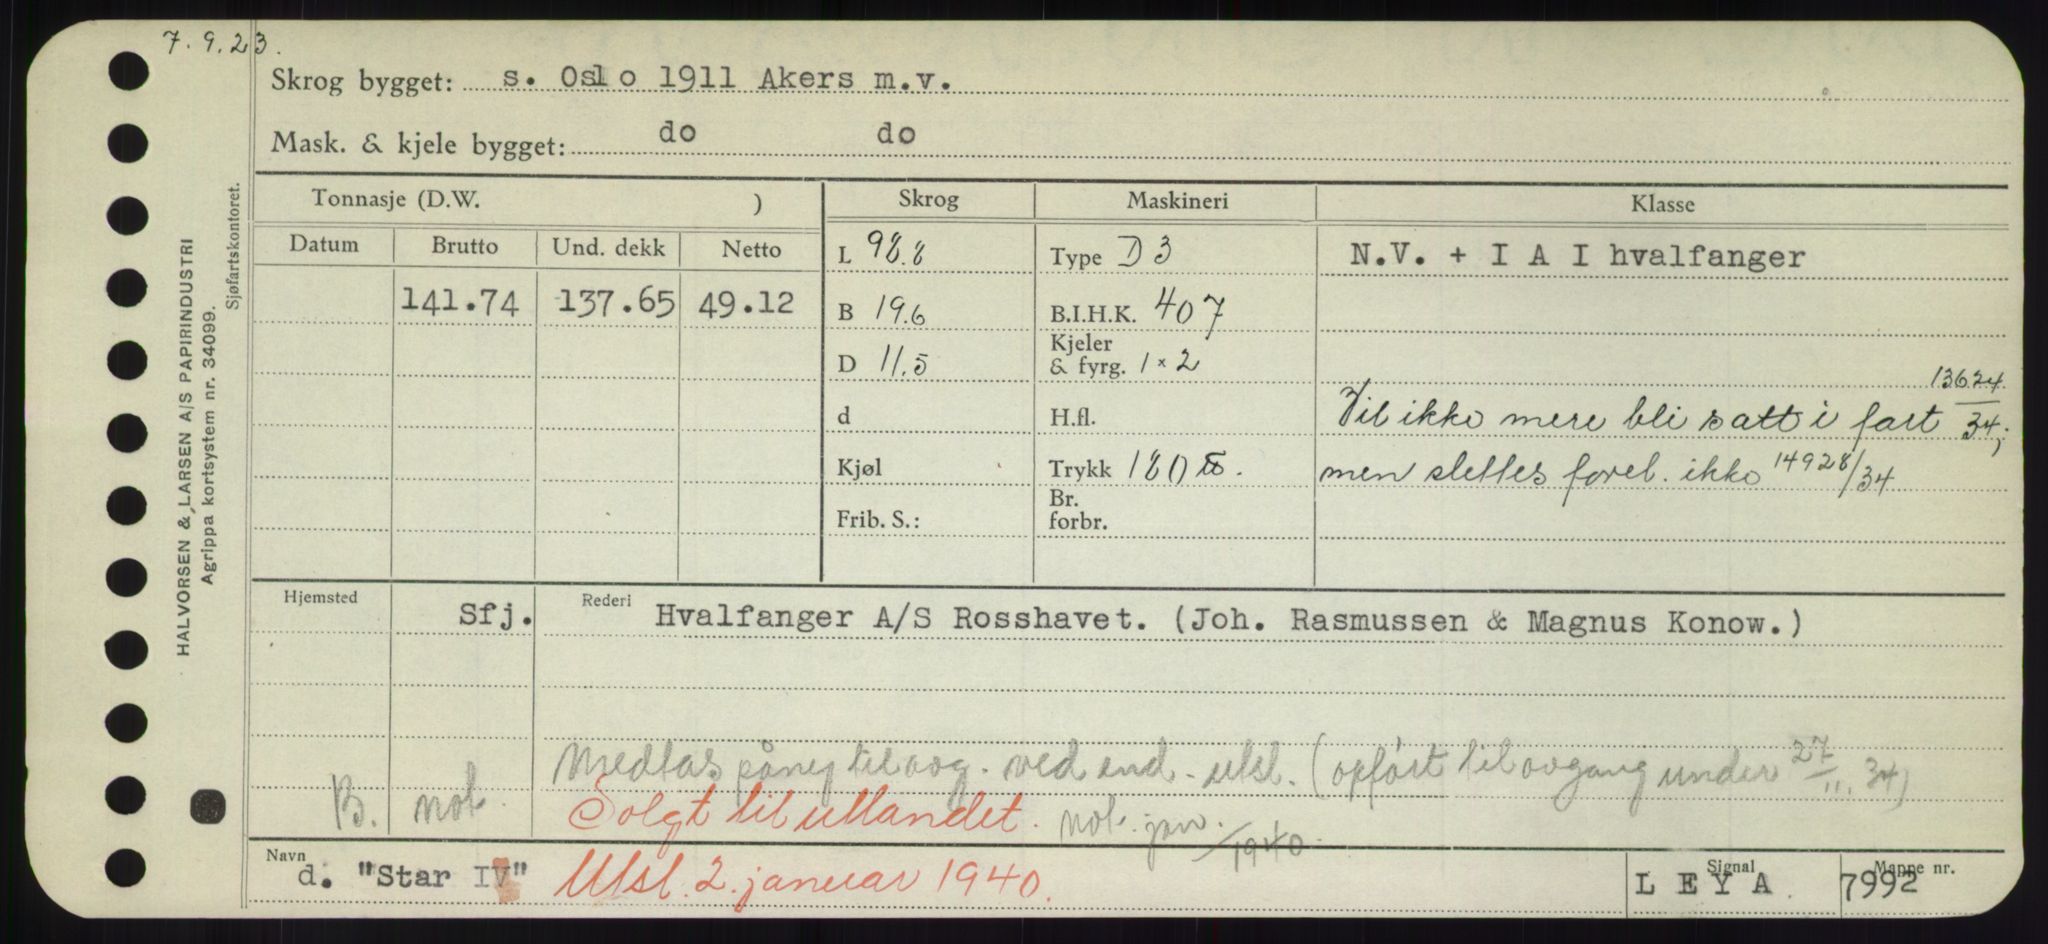 7.9.23.
Skrog bygget: s. Oslo 1911 Akers m.v.
Mask. & kjele bygget: do do
HALVORSEN & LARSEN A/S PAPIRINDUSTRI
Agrippa kortsystem nr. 34099.
Sjøfartskontoret.
Tonnasje (D.W. ) Skrog Maskineri Klasse
Datum Brutto Und. dekk Netto
L 98.8 Type D 3 N.V. + I A I hvalfanger
141.74 137.65 49.12 B 19.6 B.I.H.K. 407
D 11.5 Kjeler & fyrg. 1 x 2
d H.fl. Vil ikke mere bli satt i fart 13624/34;
Kjøl Trykk 180 lb. men slettes forel. ikke 14928/34
Frib. S.: Br. forbr.
Hjemsted Sfj. Rederi Hvalfanger A/S Rosshavet. (Joh. Rasmussen & Magnus Konow.)
Medtas påny til avg. ved end. utsl. (opført til avgang under 27/11.34)
B. not. Solgt til utlandet. not. jan./1940.
Navn d. "Star IV" Utsl. 2. januar 1940. Signal L E Y A Mappe nr. 7992